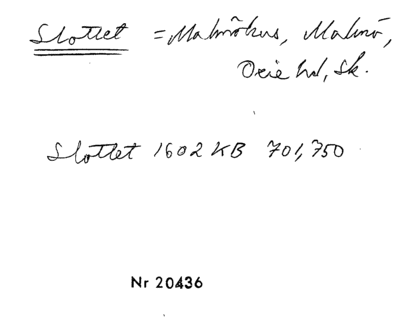 Slottet = Malmöhus, Malmö,
Oxie hd, Sk.
Slottet 1602 KB 701,750
Nr 20436